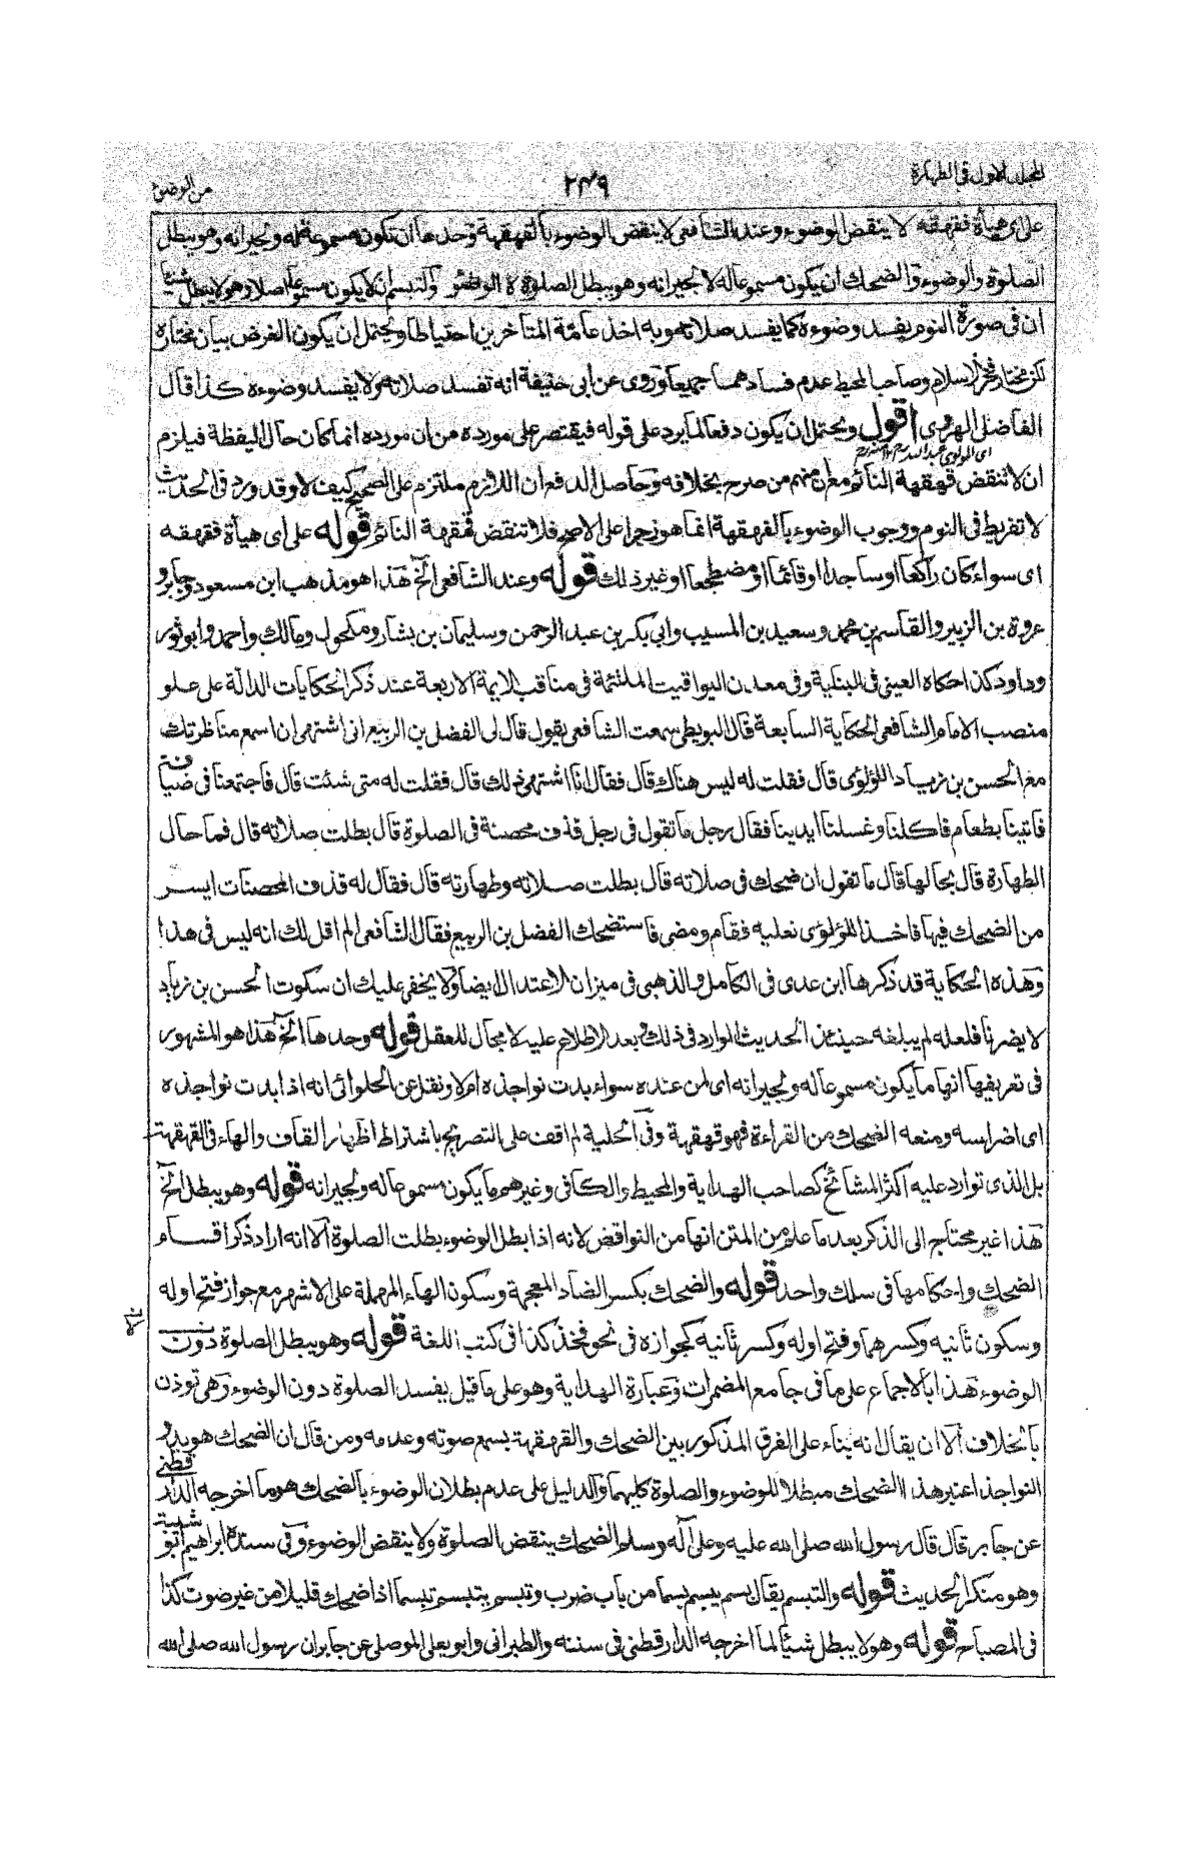 المجلد الاول فى الطهارة
٢٤٩
من الوضوء
على اى هيأة فقهقهه لا ينقض الوضوء وعند الشافعى لا ينقض الوضوء بالقهقهة وحدها ان تكون مسموعة له ولجيرانه وهو يبطل
الصلوة والوضوء والضحك ان يكون مسموعا له لا لجيرانه وهو يبطل الصلوة لا الوضوء والتبسم ان لا يكون مسموعا اصلا وهو لا يبطل شيئا
ان فى صورة النوم يفسد وضوءه كما يفسد صلاته وبه اخذ عامة المتاخرين احتياطا ويحتمل ان يكون الغرض بيان مختاره
لكن مختار فخر الاسلام وصاحب المحيط عدم فسادهما جميعا وروى عن ابى حنيفة انه تفسد صلاته ولا يفسد وضوءه كذا قال
الفاضل الهروى اقول ويحتمل ان يكون دفعا لما يرد على قوله فيقتصر على مورده من ان مورده انما كان حال اليقظة فيلزم
اى المولوى عبد
ان لا تنقض قهقهة النائم مع ان منهم من صرح بخلافه وحاصل الدفع ان اللازم ملتزم على الصحيح كيف لا وقد ورد فى الحديث
لا تفريط فى النوم ووجوب الوضوء بالقهقهة انما هو زجرا على الاصح فلا تنقض قهقهة النائم قوله على اى هيأة فقهقهه
اى سواء كان راكعا او ساجدا او قائما او مضطجعا او غير ذلك قوله وعند الشافعى الخ هذا هو مذهب ابن مسعود وجابر و
عروة بن الزبير والقاسم بن محمد وسعيد بن المسيب وابى بكر بن عبد الرحمن وسليمان بن بشار ومكحول ومالك واحمد وابو ثور
وداود كذا حكاه العينى فى البناية وفى معدن اليواقيت الملتئمة فى مناقب الايمة الاربعة عند ذكر الحكايات الدالة على علو
منصب الامام الشافعى الحكاية السابعة قال البويطى سمعت الشافعى يقول قال لى الفضل بن الربيع انى اشتهى ان اسمع مناظرتك
مع الحسن بن زياد اللؤلؤى قال فقلت له ليس هناك قال فقال انا اشتهى ذلك قال فقلت له متى شئت قال فاجتمعنا فى ضيافته
فاتينا بطعام فاكلنا وغسلنا ايدينا فقال رجل ما تقول فى رجل قذف محصنة فى الصلوة قال بطلت صلاته قال فما حال
الطهارة قال بحالها قال ما تقول ان ضحك فى صلاته قال بطلت صلاته وطهارته قال فقال له قذف المحصنات ايسر
من الضحك فيها فاخذ اللؤلؤى نعليه فقام ومضى فاستضحك الفضل بن الربيع فقال الشافعى الم اقل لك انه ليس فى هذا
وهذه الحكاية قد ذكرها ابن عدى فى الكامل والذهبى فى ميزان الاعتدال ايضا ولا يخفى عليك ان سكوت الحسن بن زياد
لا يضرنا فلعله لم يبلغه حينئذ الحديث الوارد فى ذلك وبعد الاطلاع عليه لا مجال للعقل قوله وحدها الخ هذا هو المشهور
فى تعريفها انها ما يكون مسموعا له ولجيرانه اى لمن عنده سواء بدت نواجذه ام لا ونقل عن الحلوائى انه اذا بدت نواجذه
اى اضراسه ومنعه الضحك من القراءة فهو قهقهة وفى الحلية لم اقف على التصريح باشتراط اظهار القاف والهاء فى القهقهة
بل الذى توارد عليه اكثر المشائخ كصاحب الهداية والمحيط والكافى وغيرهم ما يكون مسموعا له ولجيرانه قوله وهو يبطل الخ
هذا غير محتاج الى الذكر بعد ما علم من المتن انها من النواقض لانه اذا بطل الوضوء بطلت الصلوة الا انه اراد ذكر اقسام
الضحك واحكامها فى سلك واحد قوله والضحك بكسر الضاد المعجمة وسكون الهاء المهملة على الاشهر مع جواز فتح اوله
وسكون ثانيه وكسرهما وفتح اوله وكسر ثانيه كجوازه فى نحو فخذ كذا فى كتب اللغة قوله وهو يبطل الصلوة دون
الوضوء هذا بالاجماع على ما فى جامع المضمرات وعبارة الهداية وهو على ما قيل يفسد الصلوة دون الوضوء وهى توذن
بالخلاف الا ان يقال انه بناء على الفرق المذكور بين الضحك والقهقهة بسمع صوته وعدمه ومن قال ان الضحك هو بدو
النواجذ اعتبر هذا الضحك مبطلا للوضوء والصلوة كليهما والدليل على عدم بطلان الوضوء بالضحك هو ما اخرجه الدارقطنى
عن جابر قال قال رسول الله صلى الله عليه وعلى آله وسلم الضحك ينقض الصلوة ولا ينقض الوضوء وفى سنده ابراهيم ابو شيبة
وهو منكر الحديث قوله والتبسم يقال بسم يبسم بسما من باب ضرب وتبسم يتبسم تبسما اذا ضحك قليلا من غير صوت كذا
فى المصباح قوله وهو لا يبطل شيئا لما اخرجه الدارقطنى فى سننه والطبرانى وابو يعلى الموصلى عن جابر ان رسول الله صلى الله